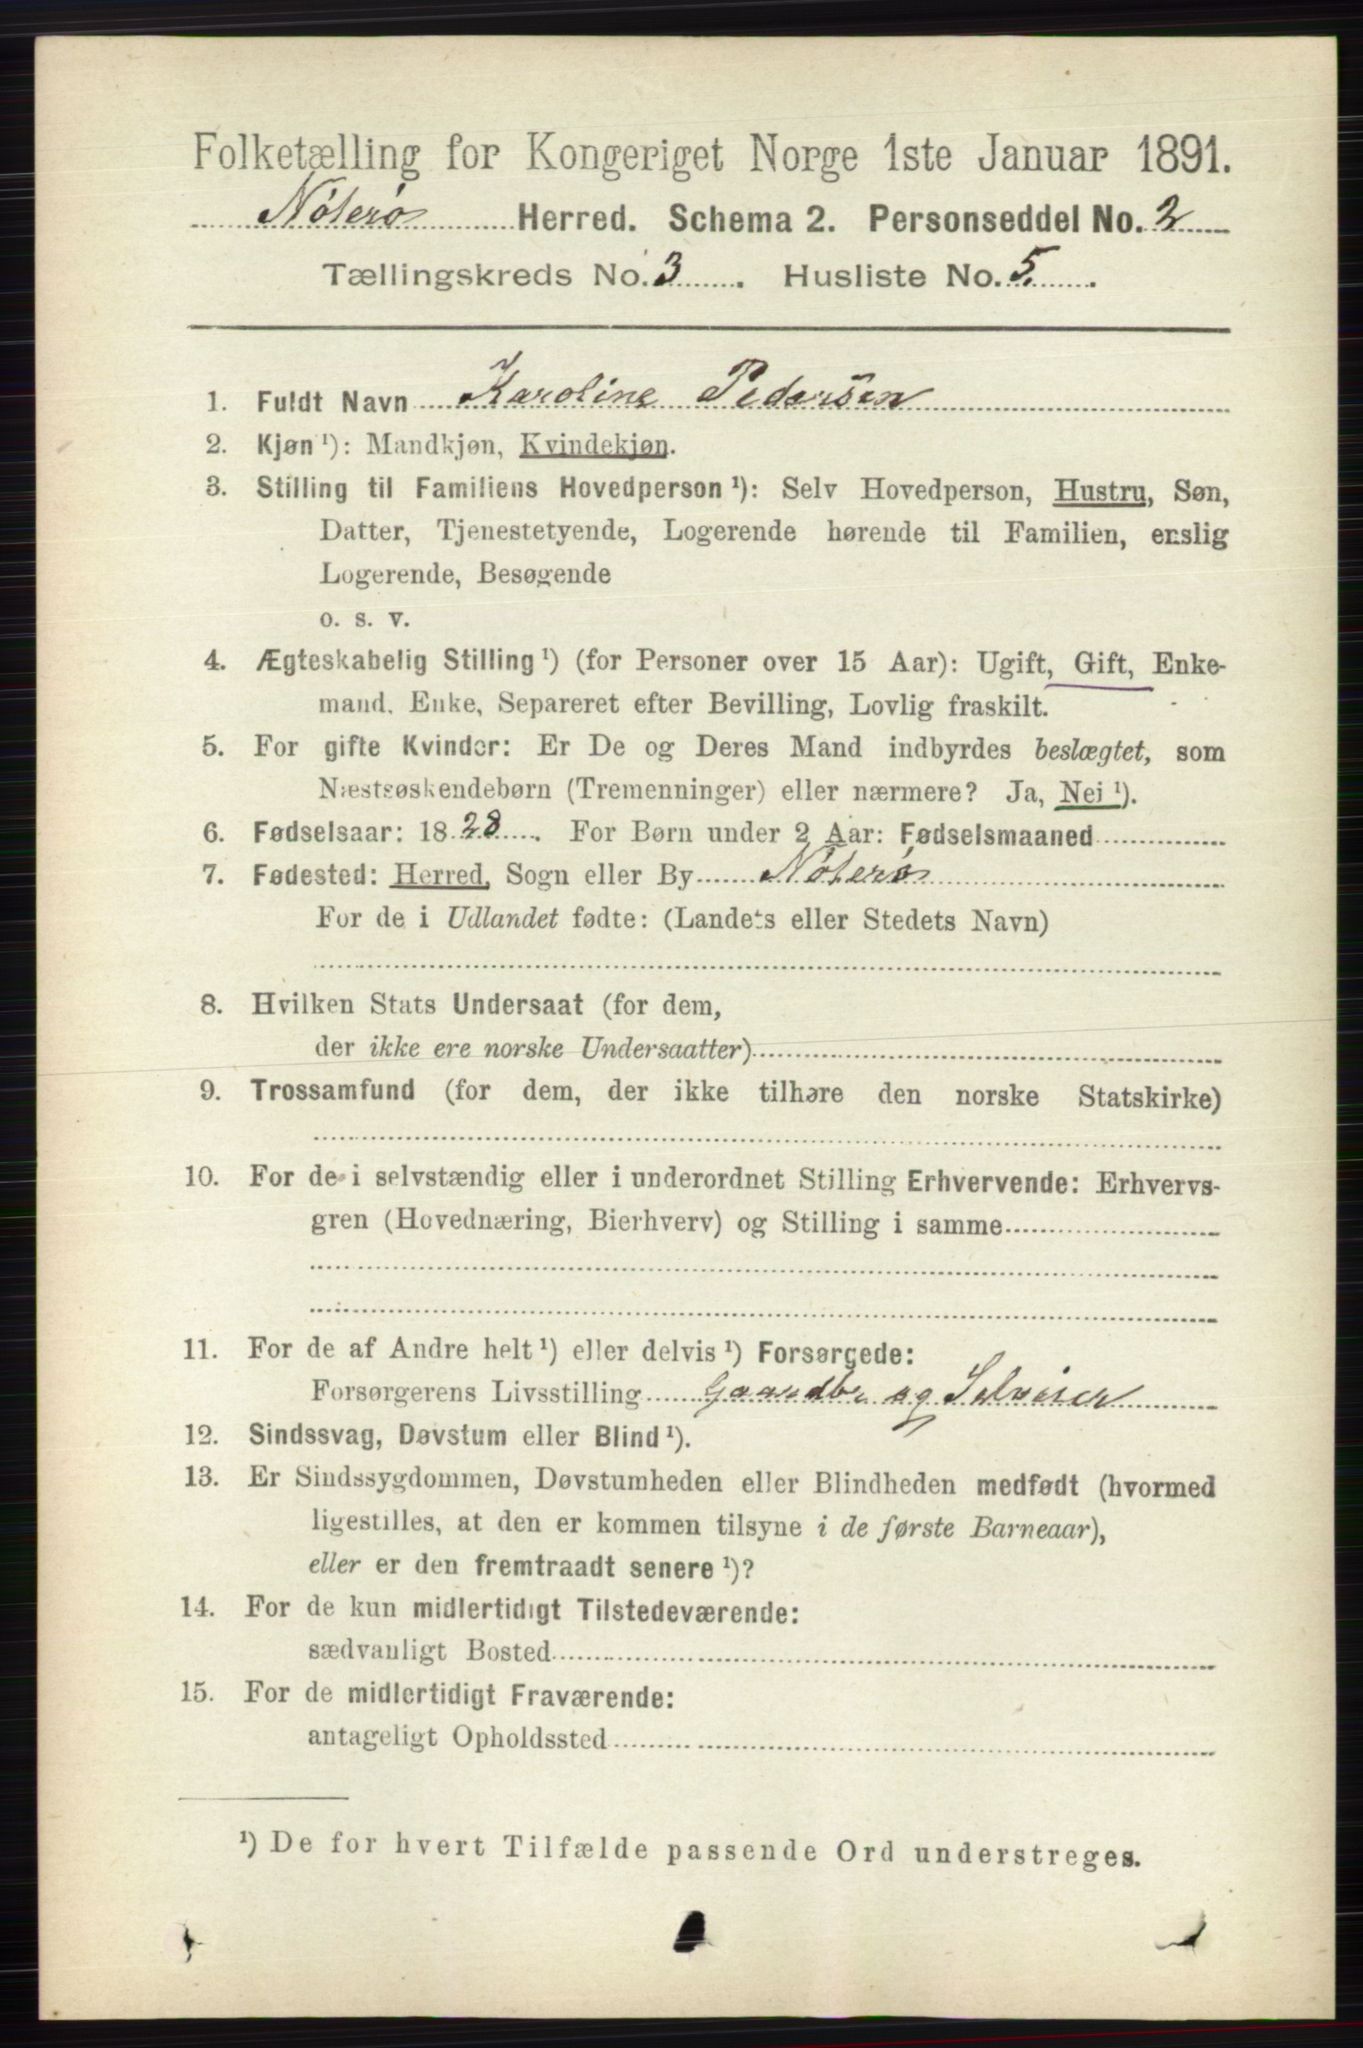 Folketælling for Kongeriget Norge 1ste Januar 1891.
Nøterø Herred. Schema 2. Personseddel No. 2
Tællingskreds No. 3. Husliste No. 5.
1. Fuldt Navn Karoline Pedersen
2. Kjøn ¹): Mandkjøn, Kvindekjøn.
3. Stilling til Familiens Hovedperson ¹): Selv Hovedperson, Hustru, Søn,
Datter, Tjenestetyende, Logerende hørende til Familien, enslig
Logerende, Besøgende
o. s. v.
4. Ægteskabelig Stilling ¹) (for Personer over 15 Aar): Ugift, Gift, Enke-
mand, Enke, Separeret efter Bevilling, Lovlig fraskilt.
5. For gifte Kvinder: Er De og Deres Mand indbyrdes beslægtet, som
Næstsøskendebørn (Tremenninger) eller nærmere? Ja, Nei ¹).
6. Fødselsaar: 1828. For Børn under 2 Aar: Fødselsmaaned
7. Fødested: Herred, Sogn eller By Nøterø
For de i Udlandet fødte: (Landets eller Stedets Navn)
8. Hvilken Stats Undersaat (for dem,
der ikke ere norske Undersaatter)
9. Trossamfund (for dem, der ikke tilhøre den norske Statskirke)
10. For de i selvstændig eller i underordnet Stilling Erhvervende: Erhvervs-
gren (Hovednæring, Bierhverv) og Stilling i samme
11. For de af Andre helt ¹) eller delvis ¹) Forsørgede:
Forsørgerens Livsstilling Gaardbr og Selveier
12. Sindssvag, Døvstum eller Blind ¹).
13. Er Sindssygdommen, Døvstumheden eller Blindheden medfødt (hvormed
ligestilles, at den er kommen tilsyne i de første Barneaar),
eller er den fremtraadt senere ¹)?
14. For de kun midlertidigt Tilstedeværende:
sædvanligt Bosted
15. For de midlertidigt Fraværende:
antageligt Opholdssted
¹) De for hvert Tilfælde passende Ord understreges.